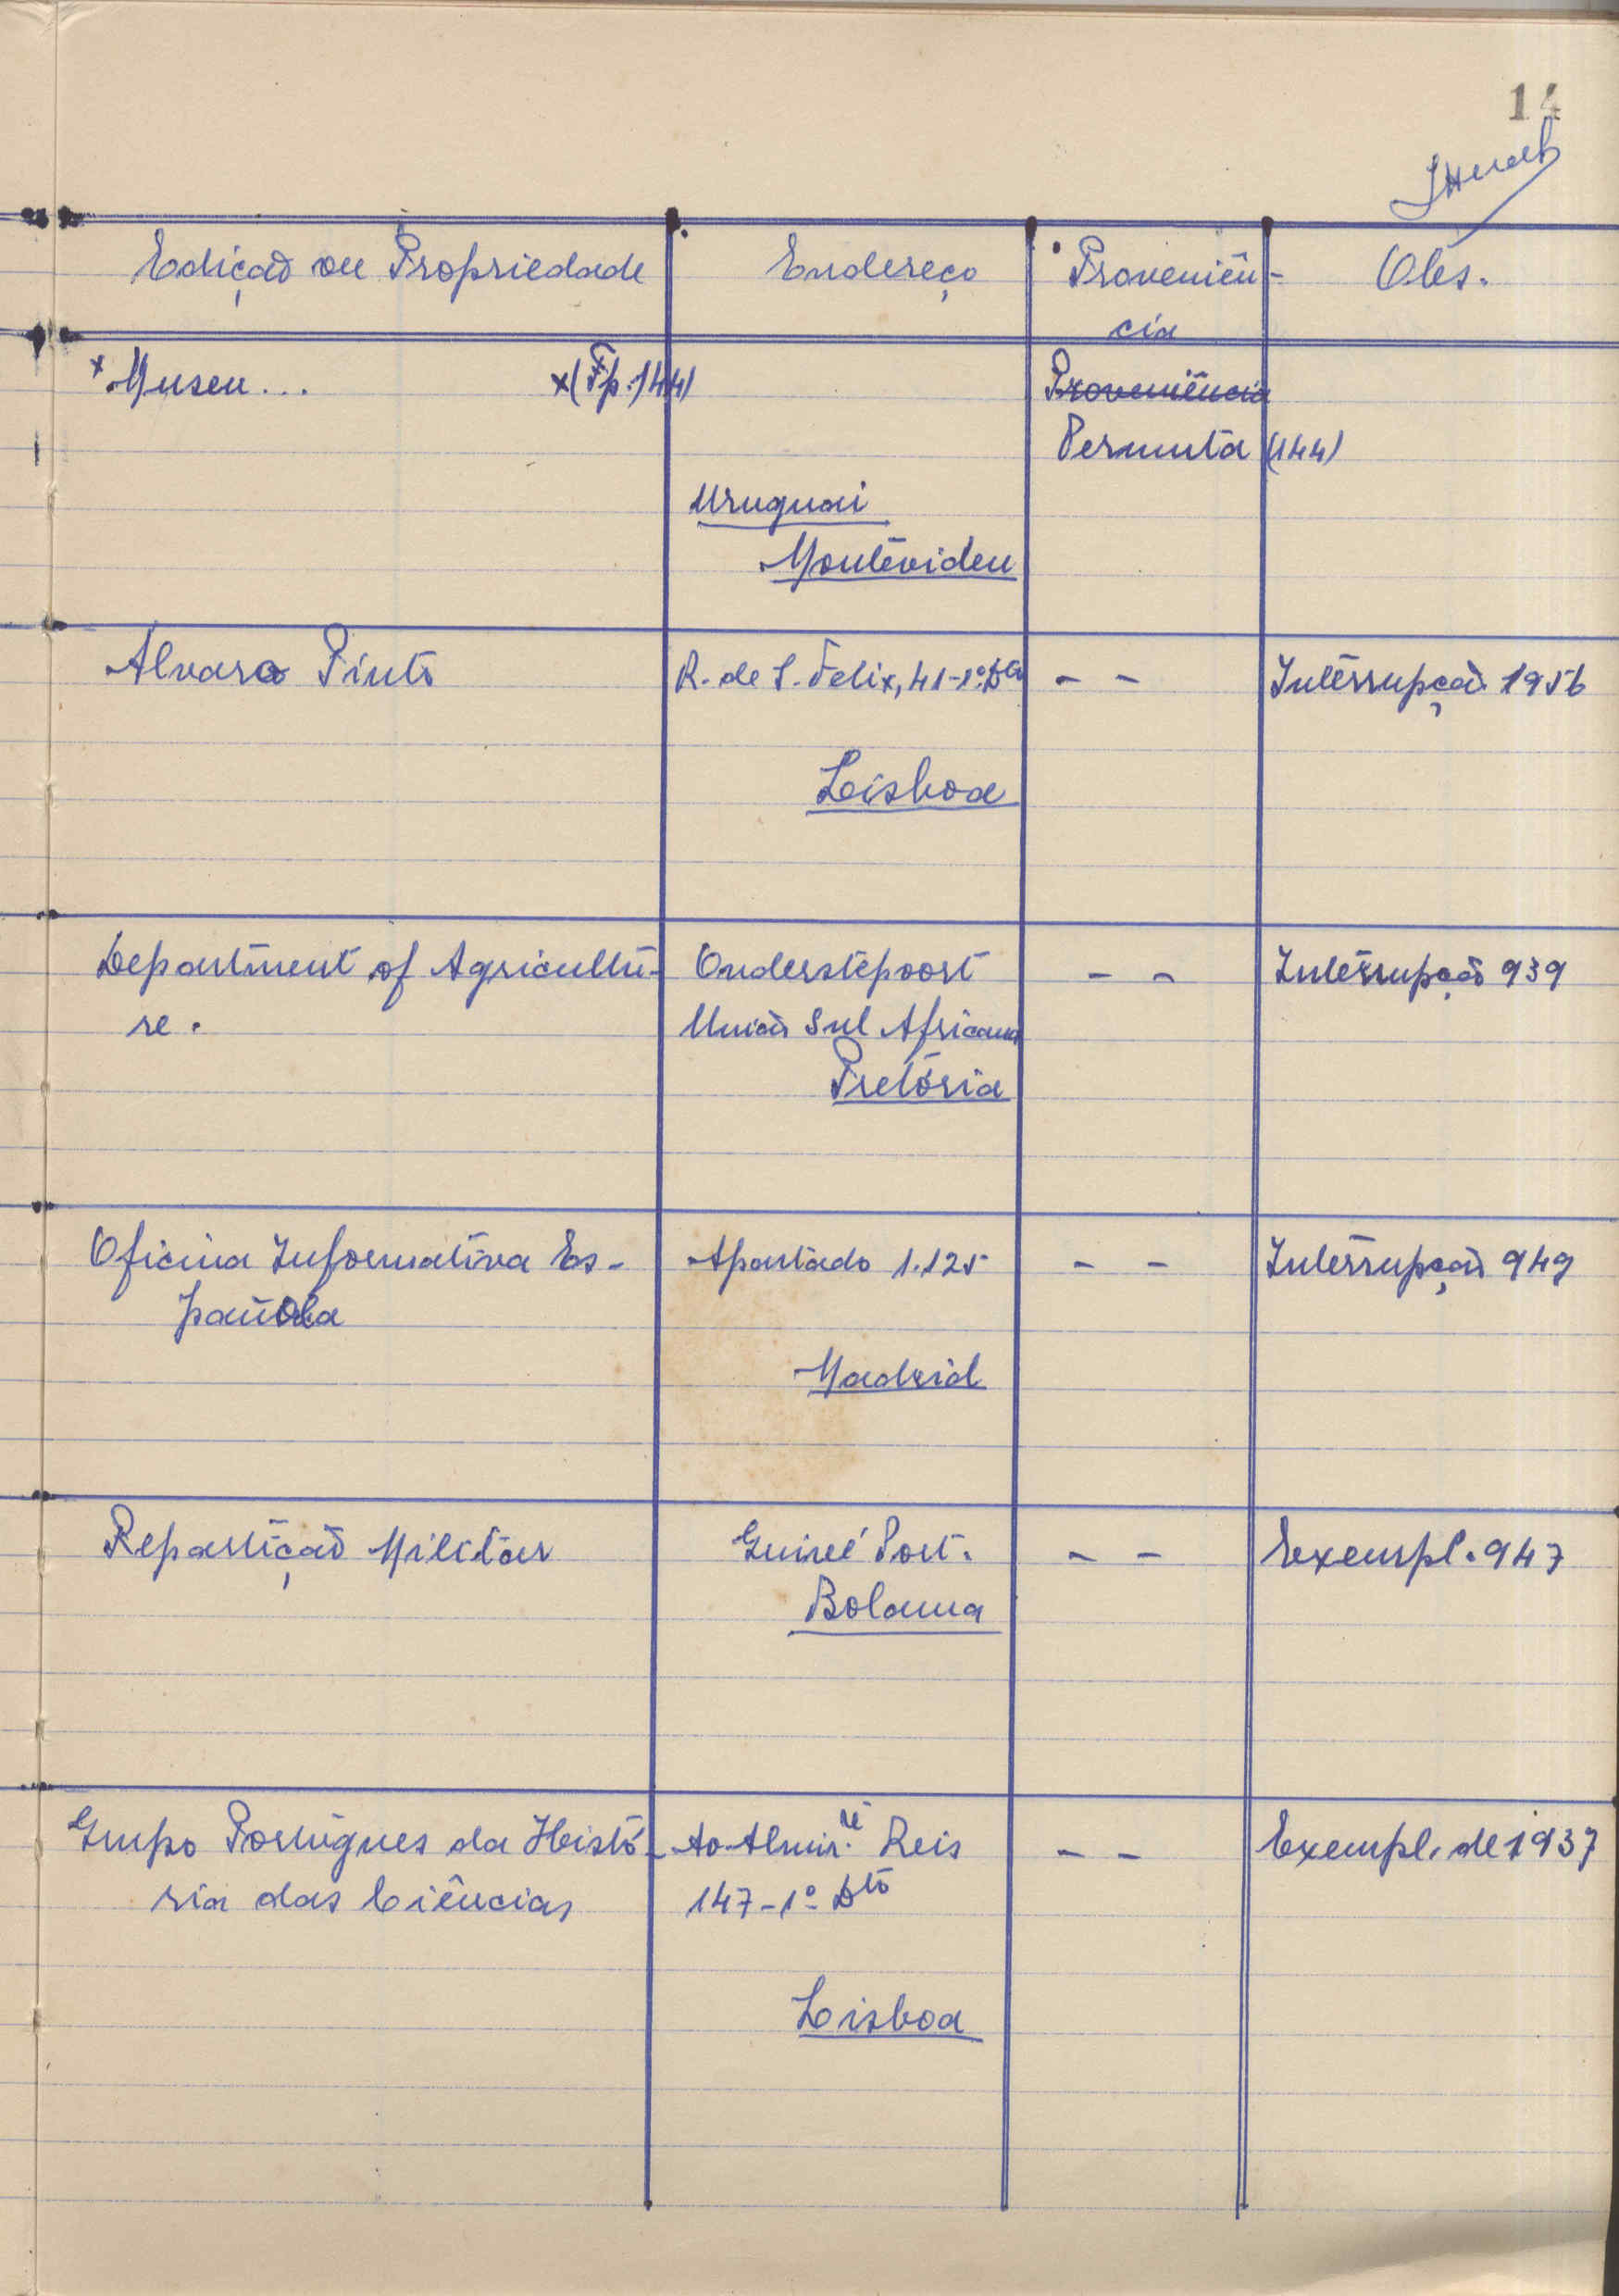 14
Edição ou Propriedade Endereço Proveniên-
cia Obs.
x Museu... x(Fp.144) Proveniência
Permuta (144)
Uruguai
Montevideu
Alvaro Pinto R. de S. Felix, 41-1º.Dto - - Interrupção 1956
Lisboa
Department of Agricultu- Onderstepoort - - Interrupção 939
re. União Sul Africana
Pretória
Oficina Informativa Es- Apartado 1.125 - - Interrupção 949
pañola
Madrid
Repartição Militar Guiné Port. - - Exempl. 947
Bolama
Grupo Português da Histó- Av. Almir.te Reis - - Exempl. de 1937
ria das Ciências 147-1º Dto
Lisboa